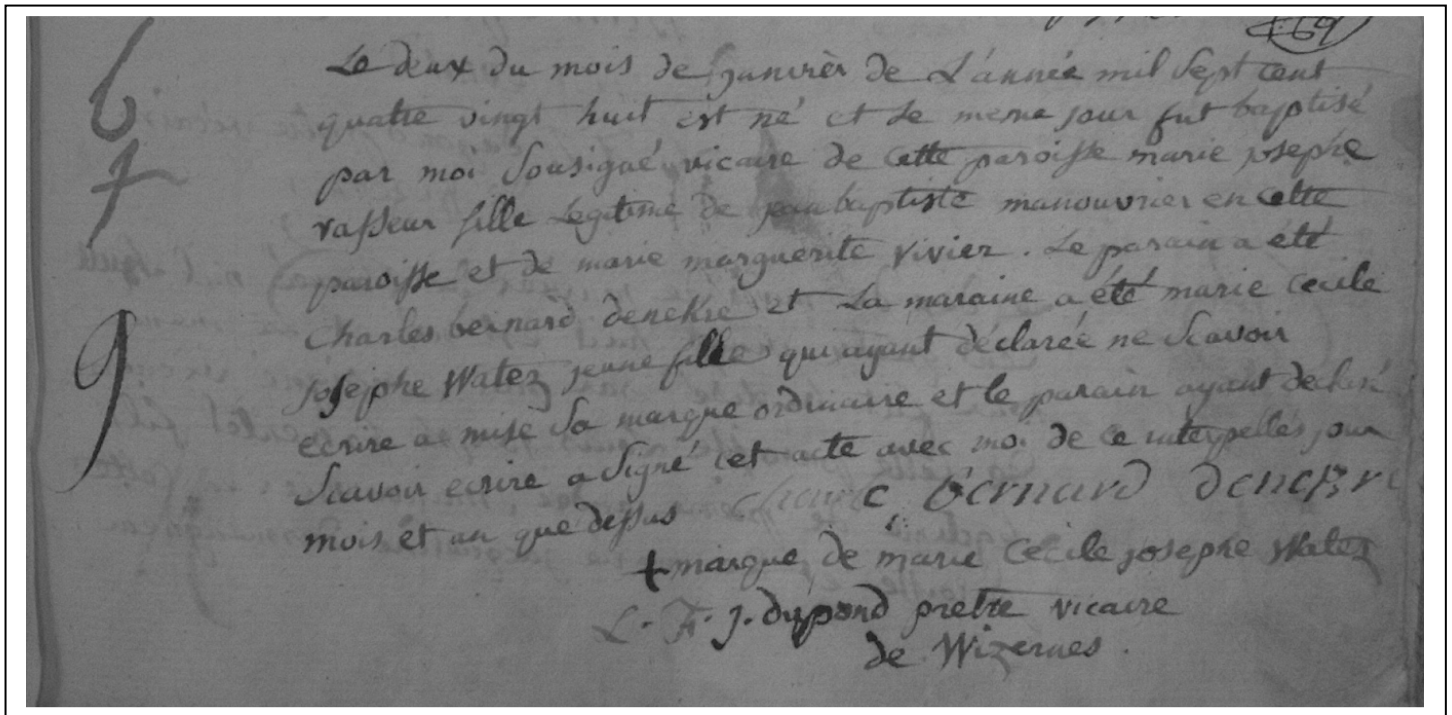 169
Le deux du mois de janvièr de L'année mil sept cent
quatre vingt huit est né et le meme jour fut baptisé
par moi sousigné vicaire de cette paroisse marie josephe
vasseur fille Legitime de jean baptiste manouvrier en cette
paroisse et de marie marguerite vivier. Le parain a été
Charles bernard denekre et La maraine a été marie Cecile
josephe Watez jeune fille qui ayant déclarée ne scavoir
ecrire a mise sa marque ordinaire et le parain ayant declaré
scavoir ecrire a signé cet acte avec moi de ce interpellés jour
mois et an que dessus charle bernard denekre
+ marque de marie Cecile josephe Watez
L. F. J. dupond pretre vicaire
de Wizernes.